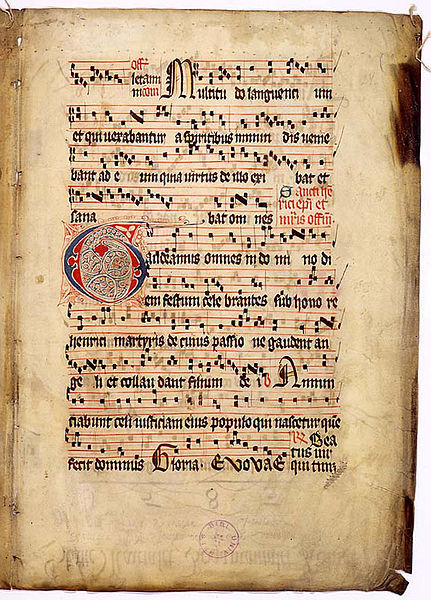 Multitu do languenti um
et qui vexabantur a spiritibus inmun dis venie
bant ad e um quia virtus de illo exi bat et
sana bat om nes
Sancti he
rici epi et
Gaudeamus omnes in do mi no di
em festum cele brantes sub hono re
henrici martyris de cuius passio ne gaudent an
ge li et collau dant filium de i Annun
ciabunt celi iusticiam eius populo qui nascetur que
fecit dominus Gloria. EVOVAE
Bea
tus vir
qui tim